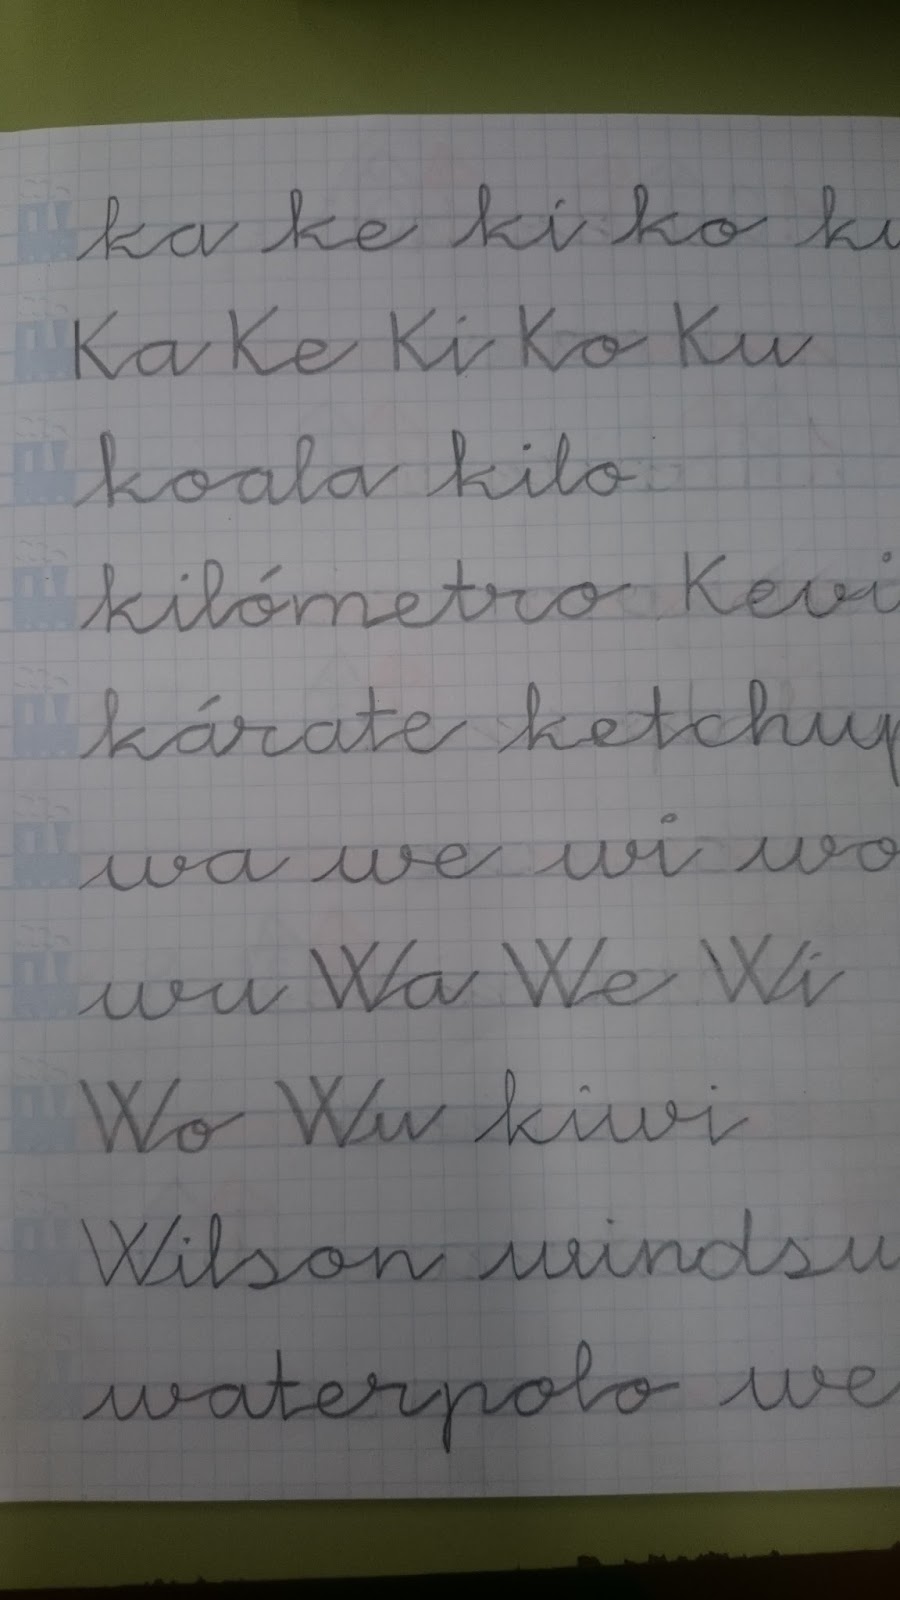 ka ke ki ko ku
Ka Ke Ki Ko Ku
koala kilo
kilómetro Kevi
kárate ketchup
wa we wi wo
wu Wa We Wi
Wo Wu kiwi
Wilson windsu
waterpolo we